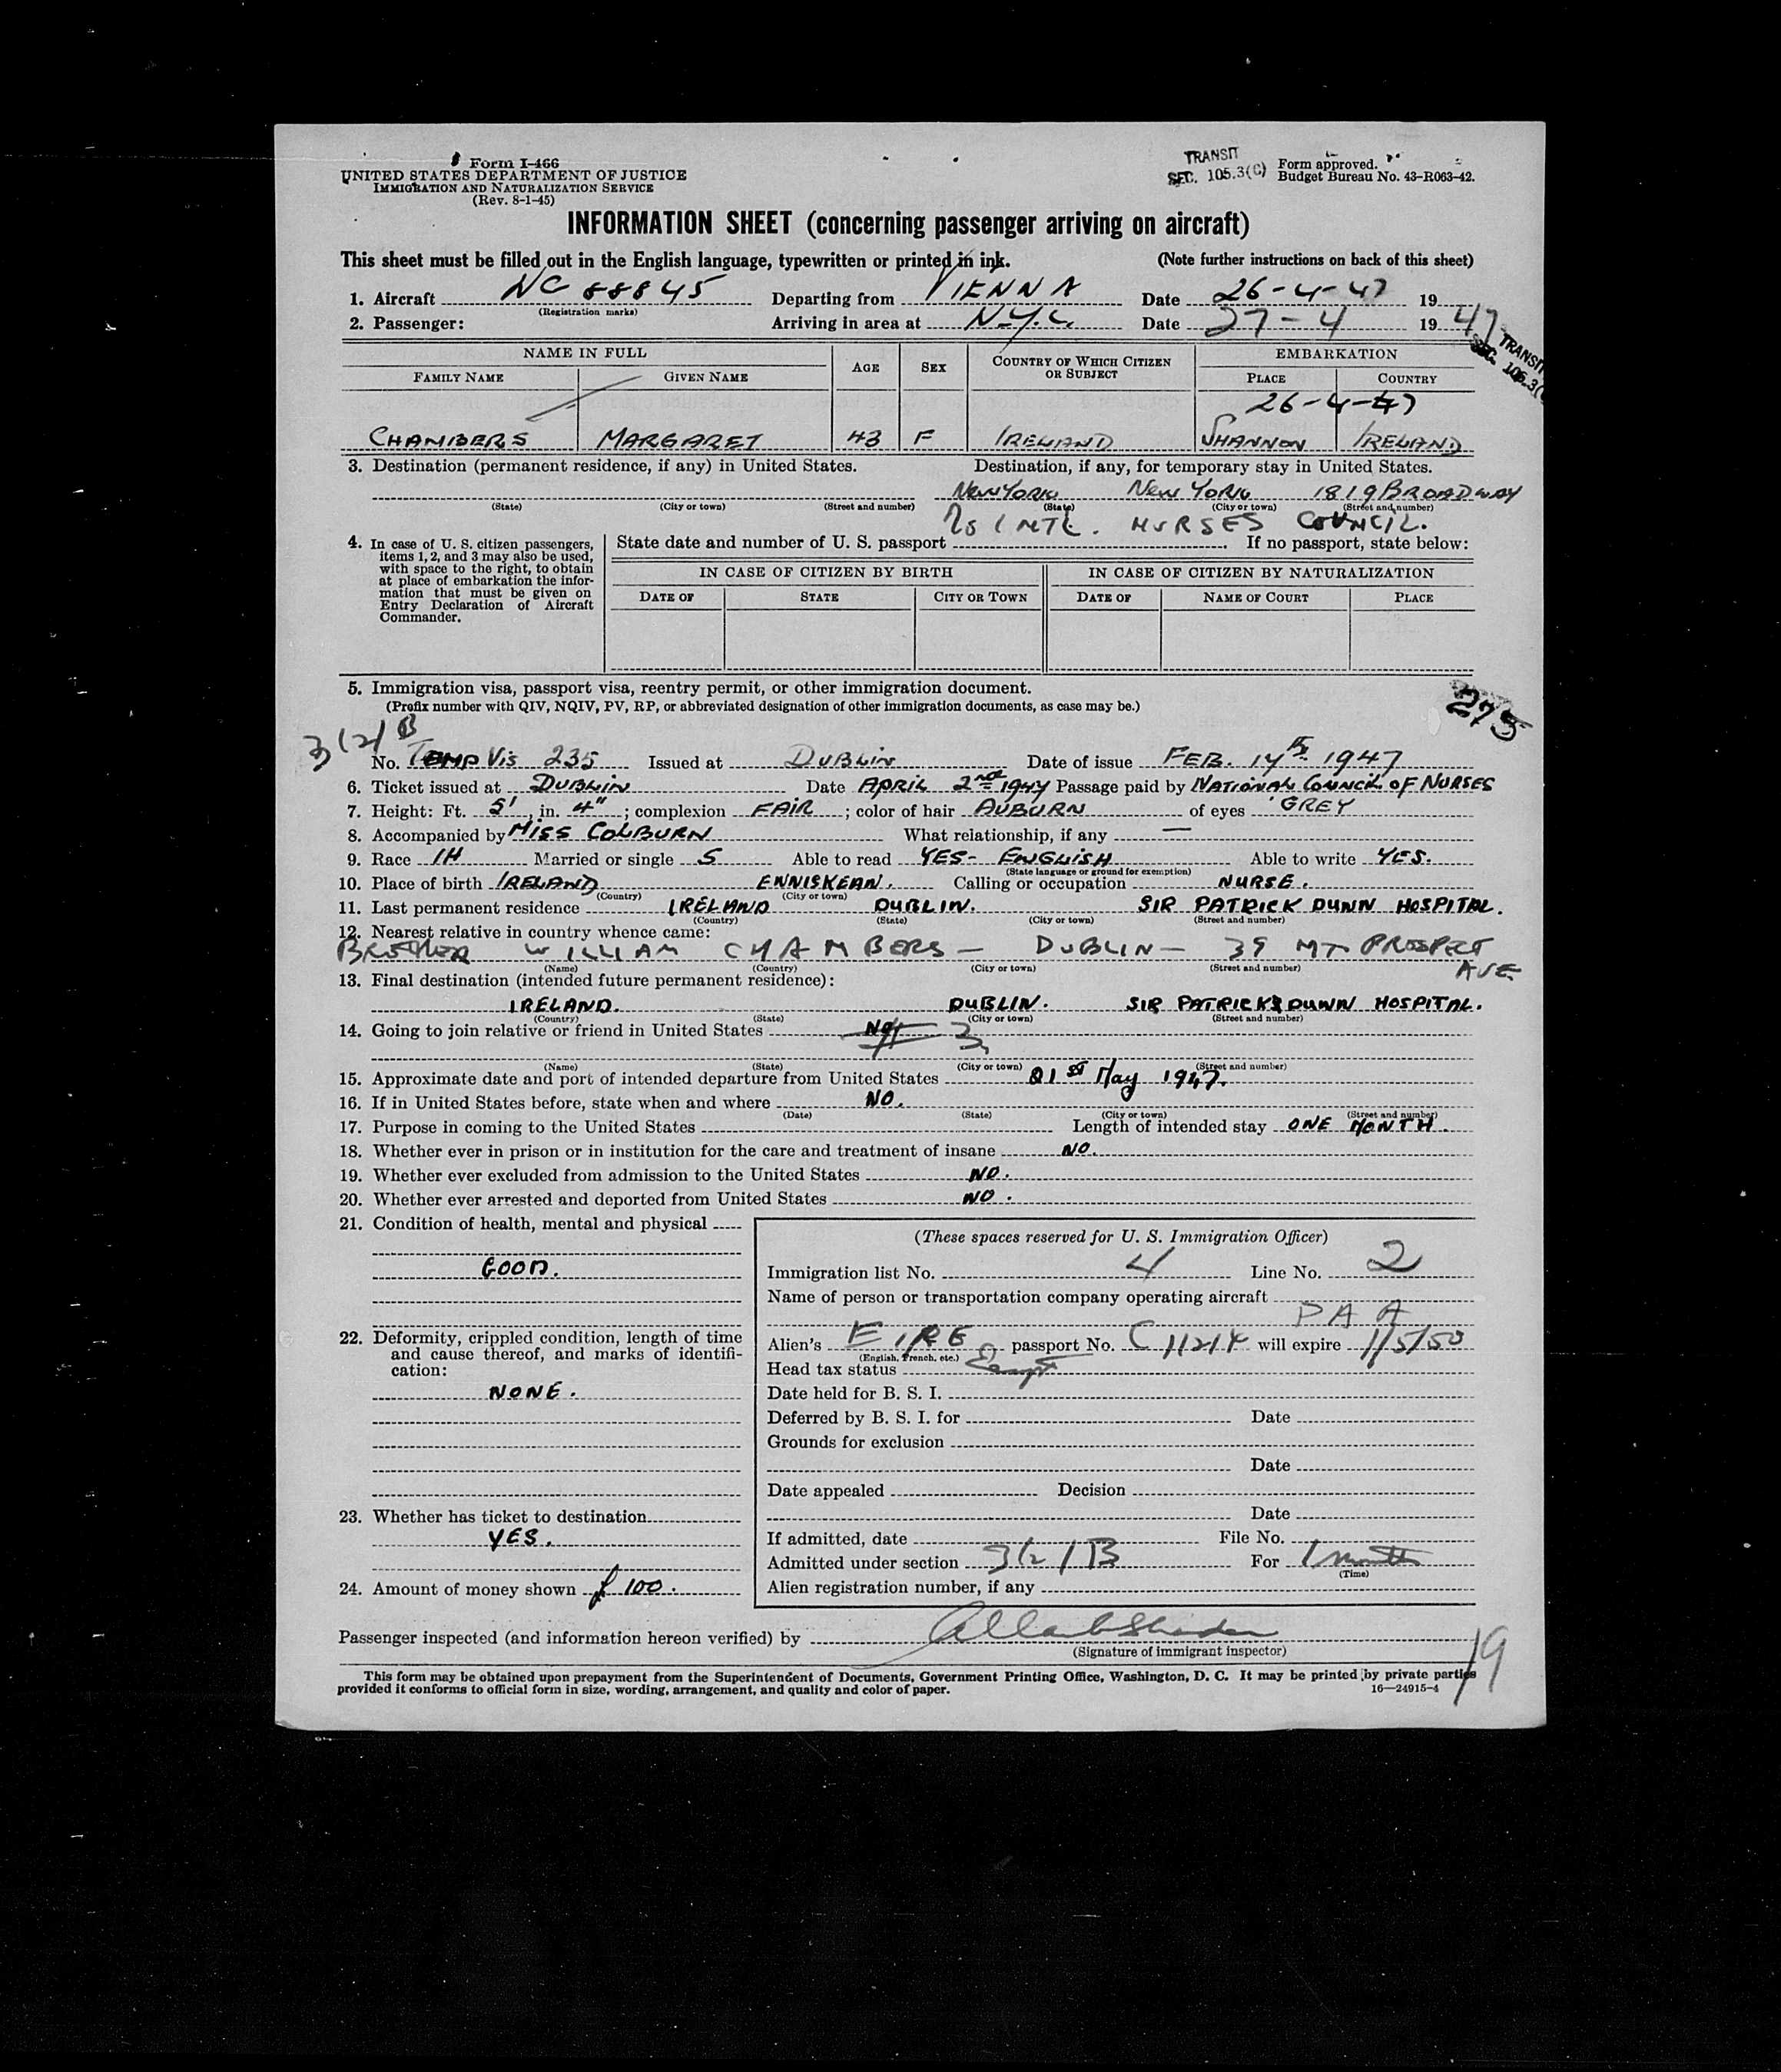 Form I-466
UNITED STATES DEPARTMENT OF JUSTICE
IMMIGRATION AND NATURALIZATION SERVICE
(Rev. 8-1-45)
TRANSIT
SEC. 105.3(C)
Form approved.
Budget Bureau No. 43-R063-42.
INFORMATION SHEET (concerning passenger arriving on aircraft)
This sheet must be filled out in the English language, typewritten or printed in ink. (Note further instructions on back of this sheet)
1. Aircraft NC 88845 Departing from VIENNA Date 26-4-47 19
(Registration marks)
2. Passenger: Arriving in area at N.Y.C. Date 27-4 1947
TRANSIT
SEC. 105.3(
NAME IN FULL AGE SEX COUNTRY OF WHICH CITIZEN OR SUBJECT EMBARKATION
FAMILY NAME GIVEN NAME PLACE COUNTRY
26-4-47
CHAMBERS MARGARET 43 F IRELAND SHANNON IRELAND
3. Destination (permanent residence, if any) in United States. Destination, if any, for temporary stay in United States.
NEW YORK NEW YORK 1819 BROADWAY
(State) (City or town) (Street and number) (State) (City or town) (Street and number)
INTL. NURSES COUNCIL.
4. In case of U. S. citizen passengers, items 1, 2, and 3 may also be used, with space to the right, to obtain at place of embarkation the information that must be given on Entry Declaration of Aircraft Commander.
State date and number of U. S. passport If no passport, state below:
IN CASE OF CITIZEN BY BIRTH IN CASE OF CITIZEN BY NATURALIZATION
DATE OF STATE CITY OR TOWN DATE OF NAME OF COURT PLACE
5. Immigration visa, passport visa, reentry permit, or other immigration document.
(Prefix number with QIV, NQIV, PV, RP, or abbreviated designation of other immigration documents, as case may be.)
275
3(2)B
No. TEMP VIS 235 Issued at DUBLIN Date of issue FEB. 14th 1947
6. Ticket issued at DUBLIN Date APRIL 2nd 1947 Passage paid by NATIONAL COUNCIL OF NURSES
7. Height: Ft. 5', in. 4"; complexion FAIR; color of hair AUBURN of eyes GREY
8. Accompanied by MISS COLBURN What relationship, if any —
9. Race IH Married or single S Able to read YES - ENGLISH Able to write YES.
(State language or ground for exemption)
10. Place of birth IRELAND ENNISKEAN. Calling or occupation NURSE.
(Country) (City or town)
11. Last permanent residence IRELAND DUBLIN. SIR PATRICK DUNN HOSPITAL.
(Country) (State) (City or town) (Street and number)
12. Nearest relative in country whence came:
BROTHER WILLIAM CHAMBERS - DUBLIN - 39 MT PROSPECT AVE
(Name) (Country) (City or town) (Street and number)
13. Final destination (intended future permanent residence):
IRELAND. DUBLIN. SIR PATRICKS DUNN HOSPITAL.
(Country) (State) (City or town) (Street and number)
14. Going to join relative or friend in United States
(Name) (State) (City or town) (Street and number)
15. Approximate date and port of intended departure from United States 31st May 1947.
16. If in United States before, state when and where NO.
(Date) (State) (City or town) (Street and number)
17. Purpose in coming to the United States Length of intended stay ONE MONTH.
18. Whether ever in prison or in institution for the care and treatment of insane NO.
19. Whether ever excluded from admission to the United States NO.
20. Whether ever arrested and deported from United States NO.
21. Condition of health, mental and physical
GOOD.
22. Deformity, crippled condition, length of time and cause thereof, and marks of identification:
NONE.
23. Whether has ticket to destination
YES.
24. Amount of money shown £100.
(These spaces reserved for U. S. Immigration Officer)
Immigration list No. 4 Line No. 2
Name of person or transportation company operating aircraft
PAA
Alien's EIRE passport No. C 11214 will expire 1/5/50
(English, French, etc.)
Head tax status Exempt
Date held for B. S. I.
Deferred by B. S. I. for Date
Grounds for exclusion
Date
Date appealed Decision
Date
If admitted, date File No.
Admitted under section 3(2)B For 1 month
(Time)
Alien registration number, if any
Passenger inspected (and information hereon verified) by
(Signature of immigrant inspector)
19
This form may be obtained upon prepayment from the Superintendent of Documents, Government Printing Office, Washington, D. C. It may be printed by private parties
provided it conforms to official form in size, wording, arrangement, and quality and color of paper. 16—24915-4